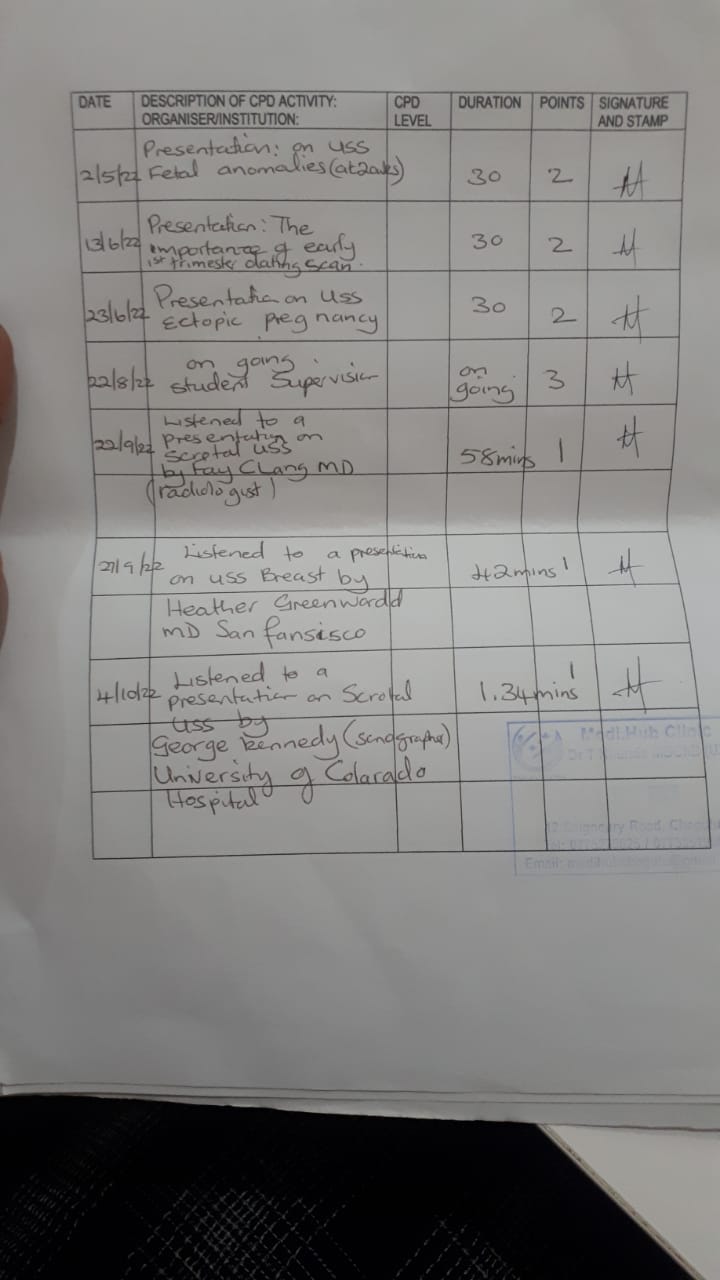 DATE DESCRIPTION OF CPD ACTIVITY: CPD DURATION POINTS SIGNATURE
ORGANISER/INSTITUTION: LEVEL AND STAMP
Presentation: on USS
2/5/22 Fetal anomalies (at 2 30 2
13/6/22 Presentation: The 30 2
importance of early
1st trimester dating scan.
23/6/22 Presentation on USS 30 2
Ectopic pregnancy
22/8/22 on going on 3
student Supervision going
Listened to a
22/9/22 presentation on
Scrotal USS 58mins 1
by Fay CLang MD
(radiologist)
27/9/22 Listened to a presentation
on USS Breast by 42mins 1
Heather Greenwardd
MD San fansisco
4/10/22 Listened to a 1
presentation on Scrotal 1.34mins
USS by
George Kennedy (sonographer)
University of Colarado
Hospital
Medi.Hub Clinic
Road,
Email: